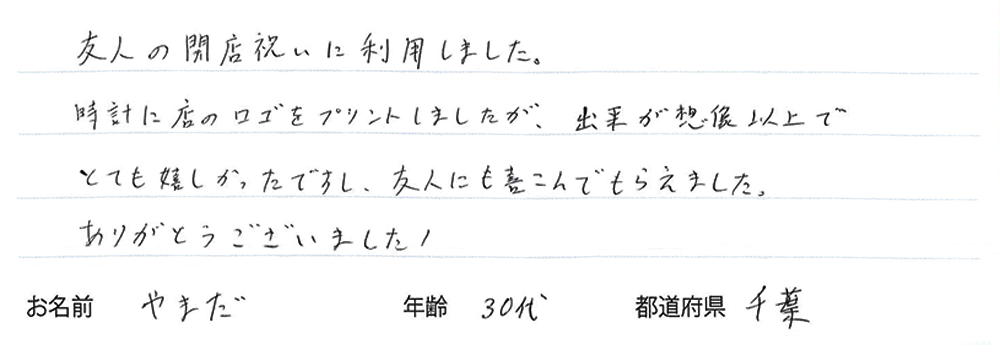 友人の開店祝いに利用しました。
時計に店のロゴをプリントしましたが、出来が想像以上で
とても嬉しかったですし、友人にも喜こんでもらえました。
ありがとうございました!
お名前 やまだ 年齢 30代 都道府県 千葉